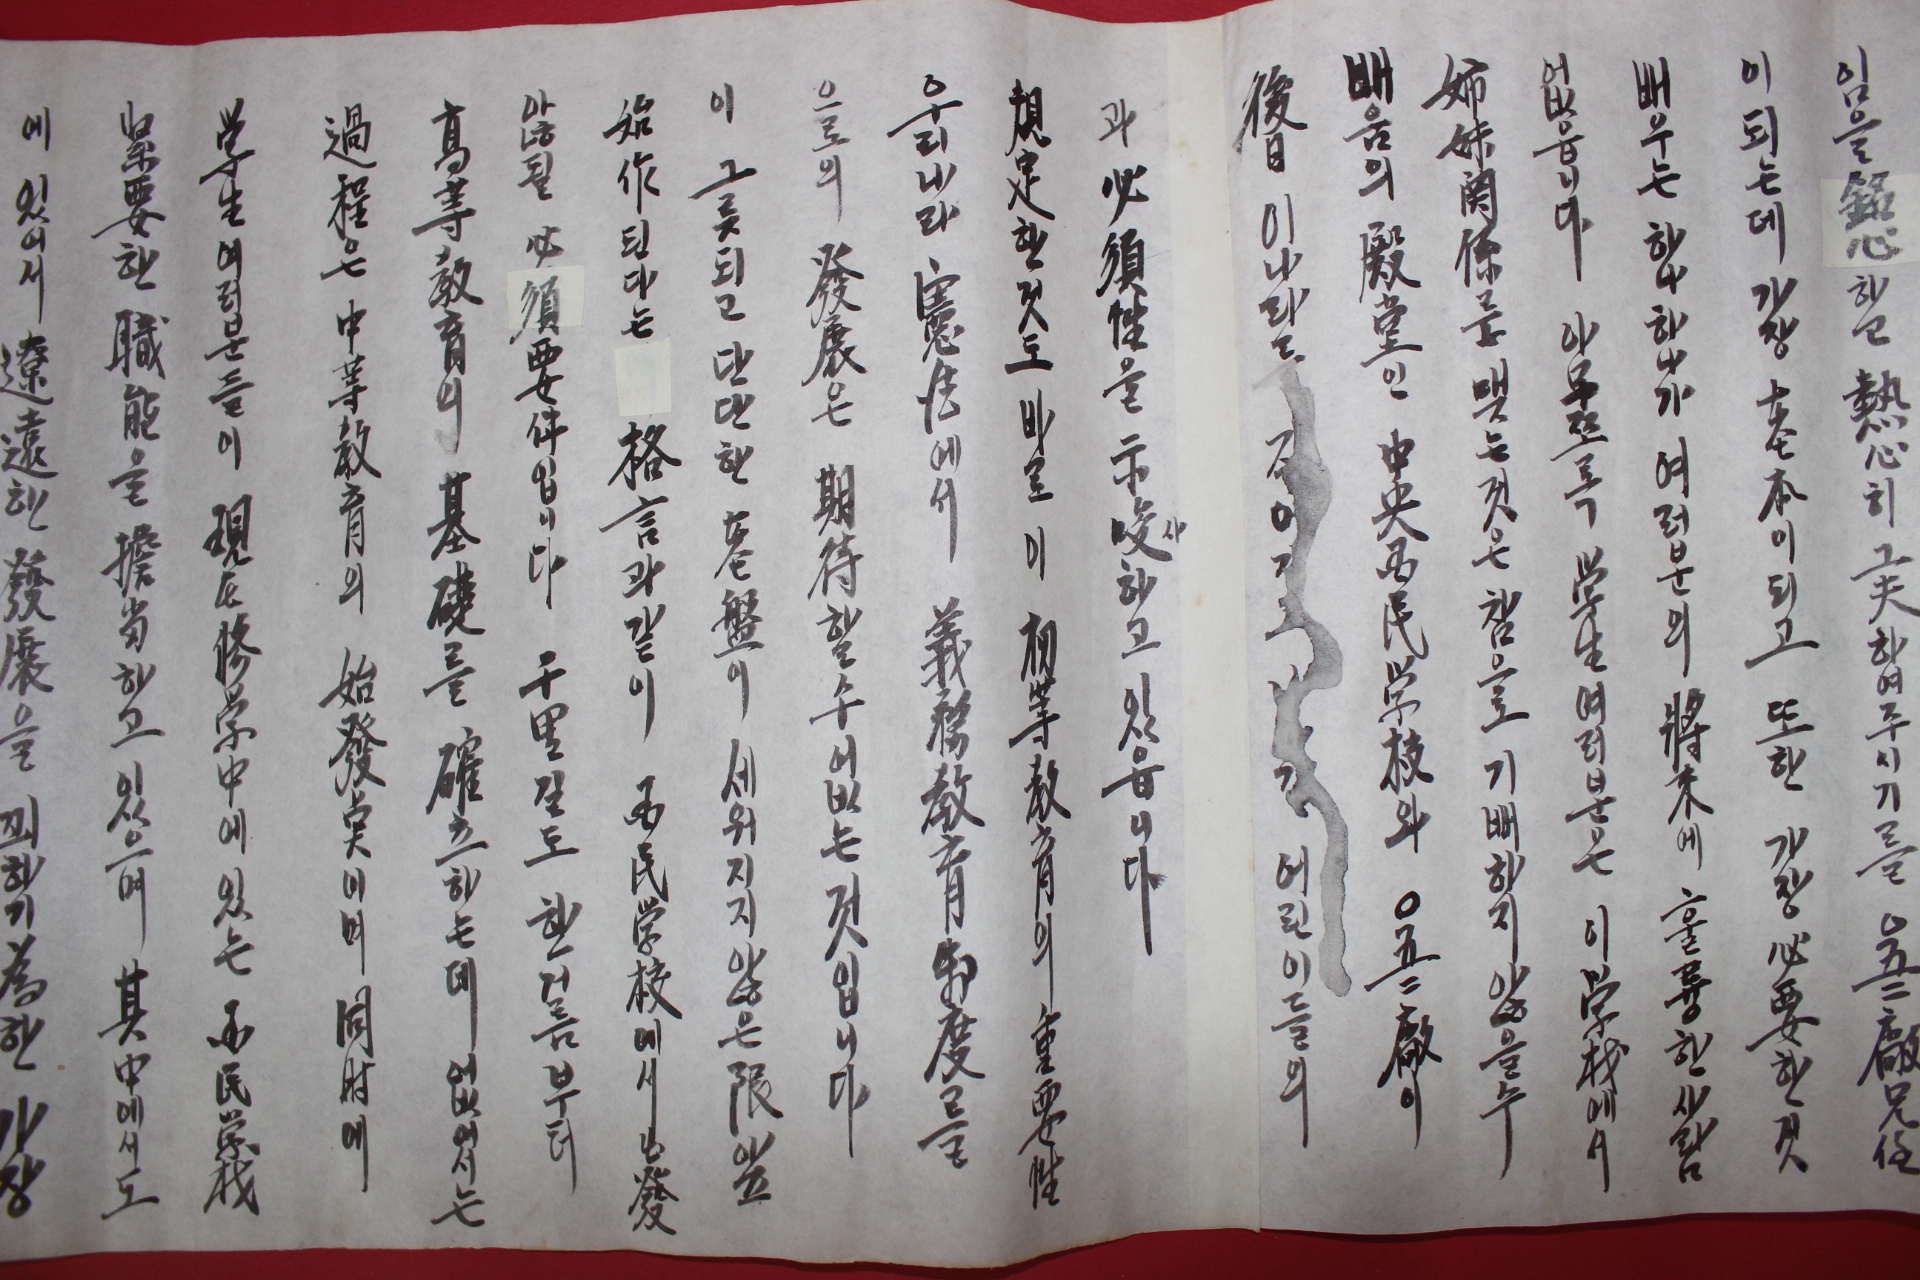 에 있어서 遼遠한 發展을 꾀하기 爲한 가장
緊要한 職能을 擔當하고 있으며 其中에서도
学生여러분들이 現在 修学中에 있는 国民学校
過程은 中等教育의 始發点이며 同時에
高等教育의 基礎를 確立하는데 없어서는
않될 必須要件입니다 千里길도 한걸음부터
始作된다는 格言과같이 国民学校에서 出發
이 그릇되고 단단한 基盤이 세워지지않은 限 앞
으로의 發展은 期待할수없는것입니다
우리나라 憲法에서 義務教育制度를
規定한것도 바로 이 初等教育의 重要性
과 必須性을 示唆사하고 있읍니다
後日 이나라를 어린이들의
배움의 殿堂인 中央国民学校와 0五二廠이
姉妹関係를 맺는것은 참으로 기뻐하지 않을수
없읍니다 아무쪼록 学生여러분은 이 学校에서
배우는 하나하나가 여러분의 將来에 훌륭한 사람
이 되는데 가장 基本이되고 또한 가장 必要한 것
임을 銘心하고 熱心히 工夫하여주시기를 0五二廠兄任